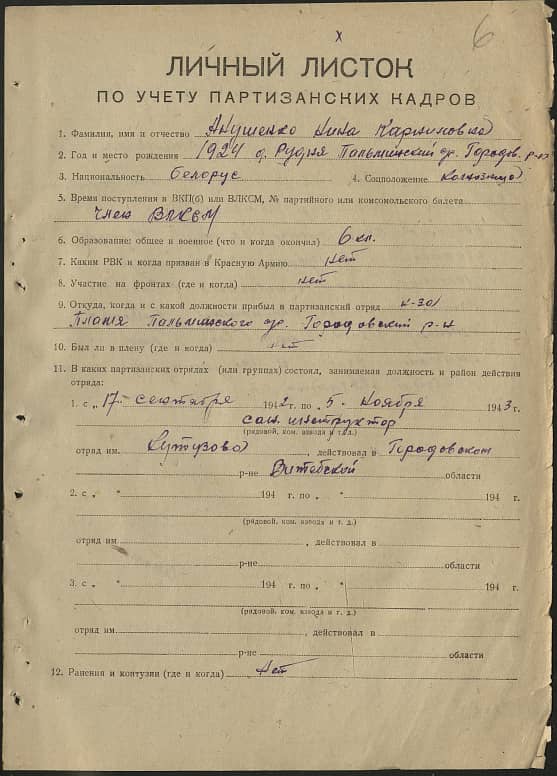 х
6
ЛИЧНЫЙ ЛИСТОК
ПО УЧЕТУ ПАРТИЗАНСКИХ КАДРОВ
1. Фамилия, имя и отчество Янушенко Нина Карликовна
2. Год и место рождения 1924 д. Рудня Пальминский Городов. р-на
3. Национальность белорус 4. Соцположение колхозница
5. Время поступления в ВКП(б) или ВЛКСМ, № партийного или комсомольского билета
член ВЛКСМ
6. Образование: общее и военное (что и когда окончил) 6 кл.
7. Каким РВК и когда призван в Красную Армию нет
8. Участие на фронтах (где и когда) нет
9. Откуда, когда и с какой должности прибыл в партизанский отряд к-за
Пальминского Городовский р-н
10. Был ли в плену (где и когда) нет
11. В каких партизанских отрядах (или группах) состоял, занимаемая должность и район действия
отряда:
1. с „ 17 " сентября 1942 г. по „ 5 " Ноября 1943 г.
сан. инструктор
(рядовой, ком. взвода и т. д.)
отряд им. Кутузова, действовал в Городовском
р-не Витебской области
2. с „ " 194 г. по „ " 194 г.
(рядовой, ком. взвода и т. д.)
отряд им. , действовал в
р-не области
3. с „ " 194 г. по „ " 194 г.
(рядовой, ком. взвода и т. д.)
отряд им. , действовал в
р-не области
12. Ранения и контузии (где и когда) Нет